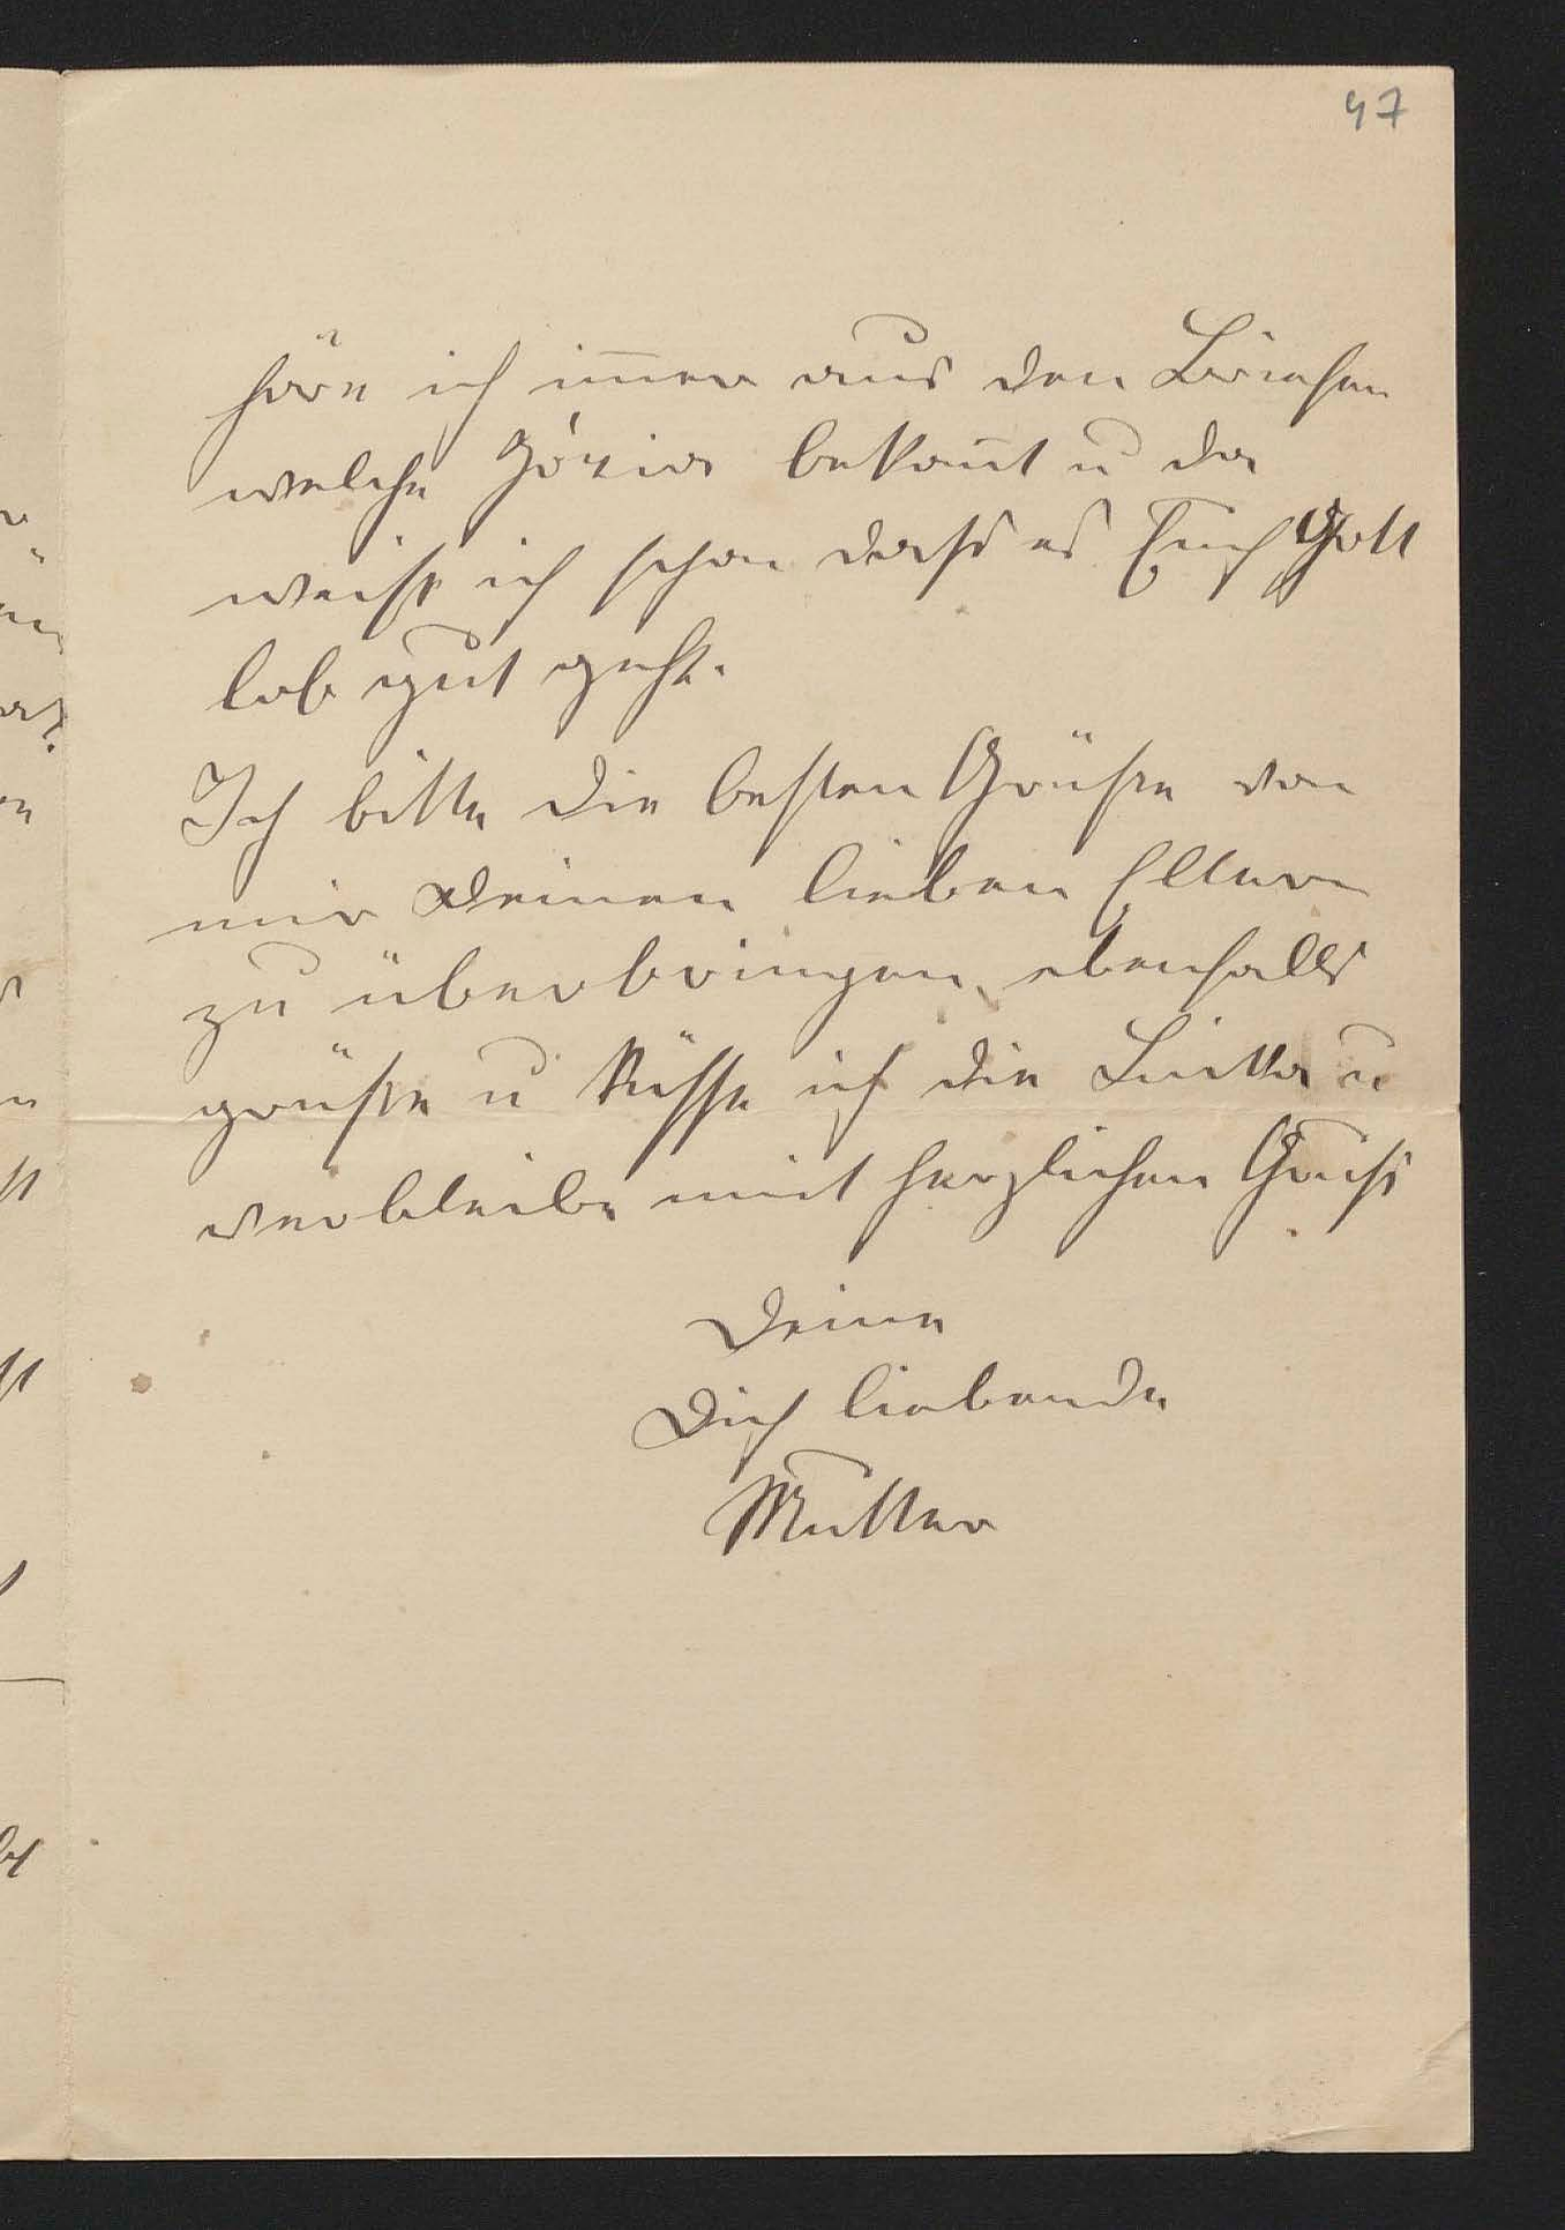 47
höre ich im̄er aus den Briefen
welche bekom̄t u da
weiß ich schon daß es Euch Gott
lob gut geht.
Ich bitte die besten Grüße von
mir Deinen lieben Eltern
zu überbringen, ebenfalls
grüße u küsse ich die u
verbleibe mit herzlichen Gruß
Deine
Dich liebende
Mutter